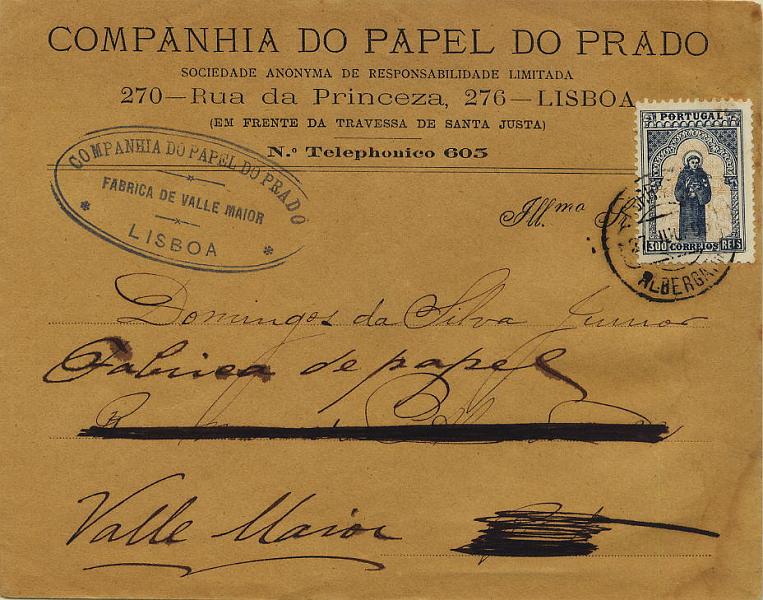 COMPANHIA DO PAPEL DO PRADO
SOCIEDADE ANONYMA DE RESPONSABILIDADE LIMITADA
270—Rua da Princeza, 276—LISBOA
(EM FRENTE DA TRAVESSA DE SANTA JUSTA)
N.º Telephonico 605
PORTUGAL
300 CORREIOS REIS
ALBERGA
COMPANHIA DO PAPEL DO PRADO
FABRICA DE VALLE MAIOR
LISBOA
Ill.mo
Domingos da Silva Junior
Fabrica de papel
Valle Maior